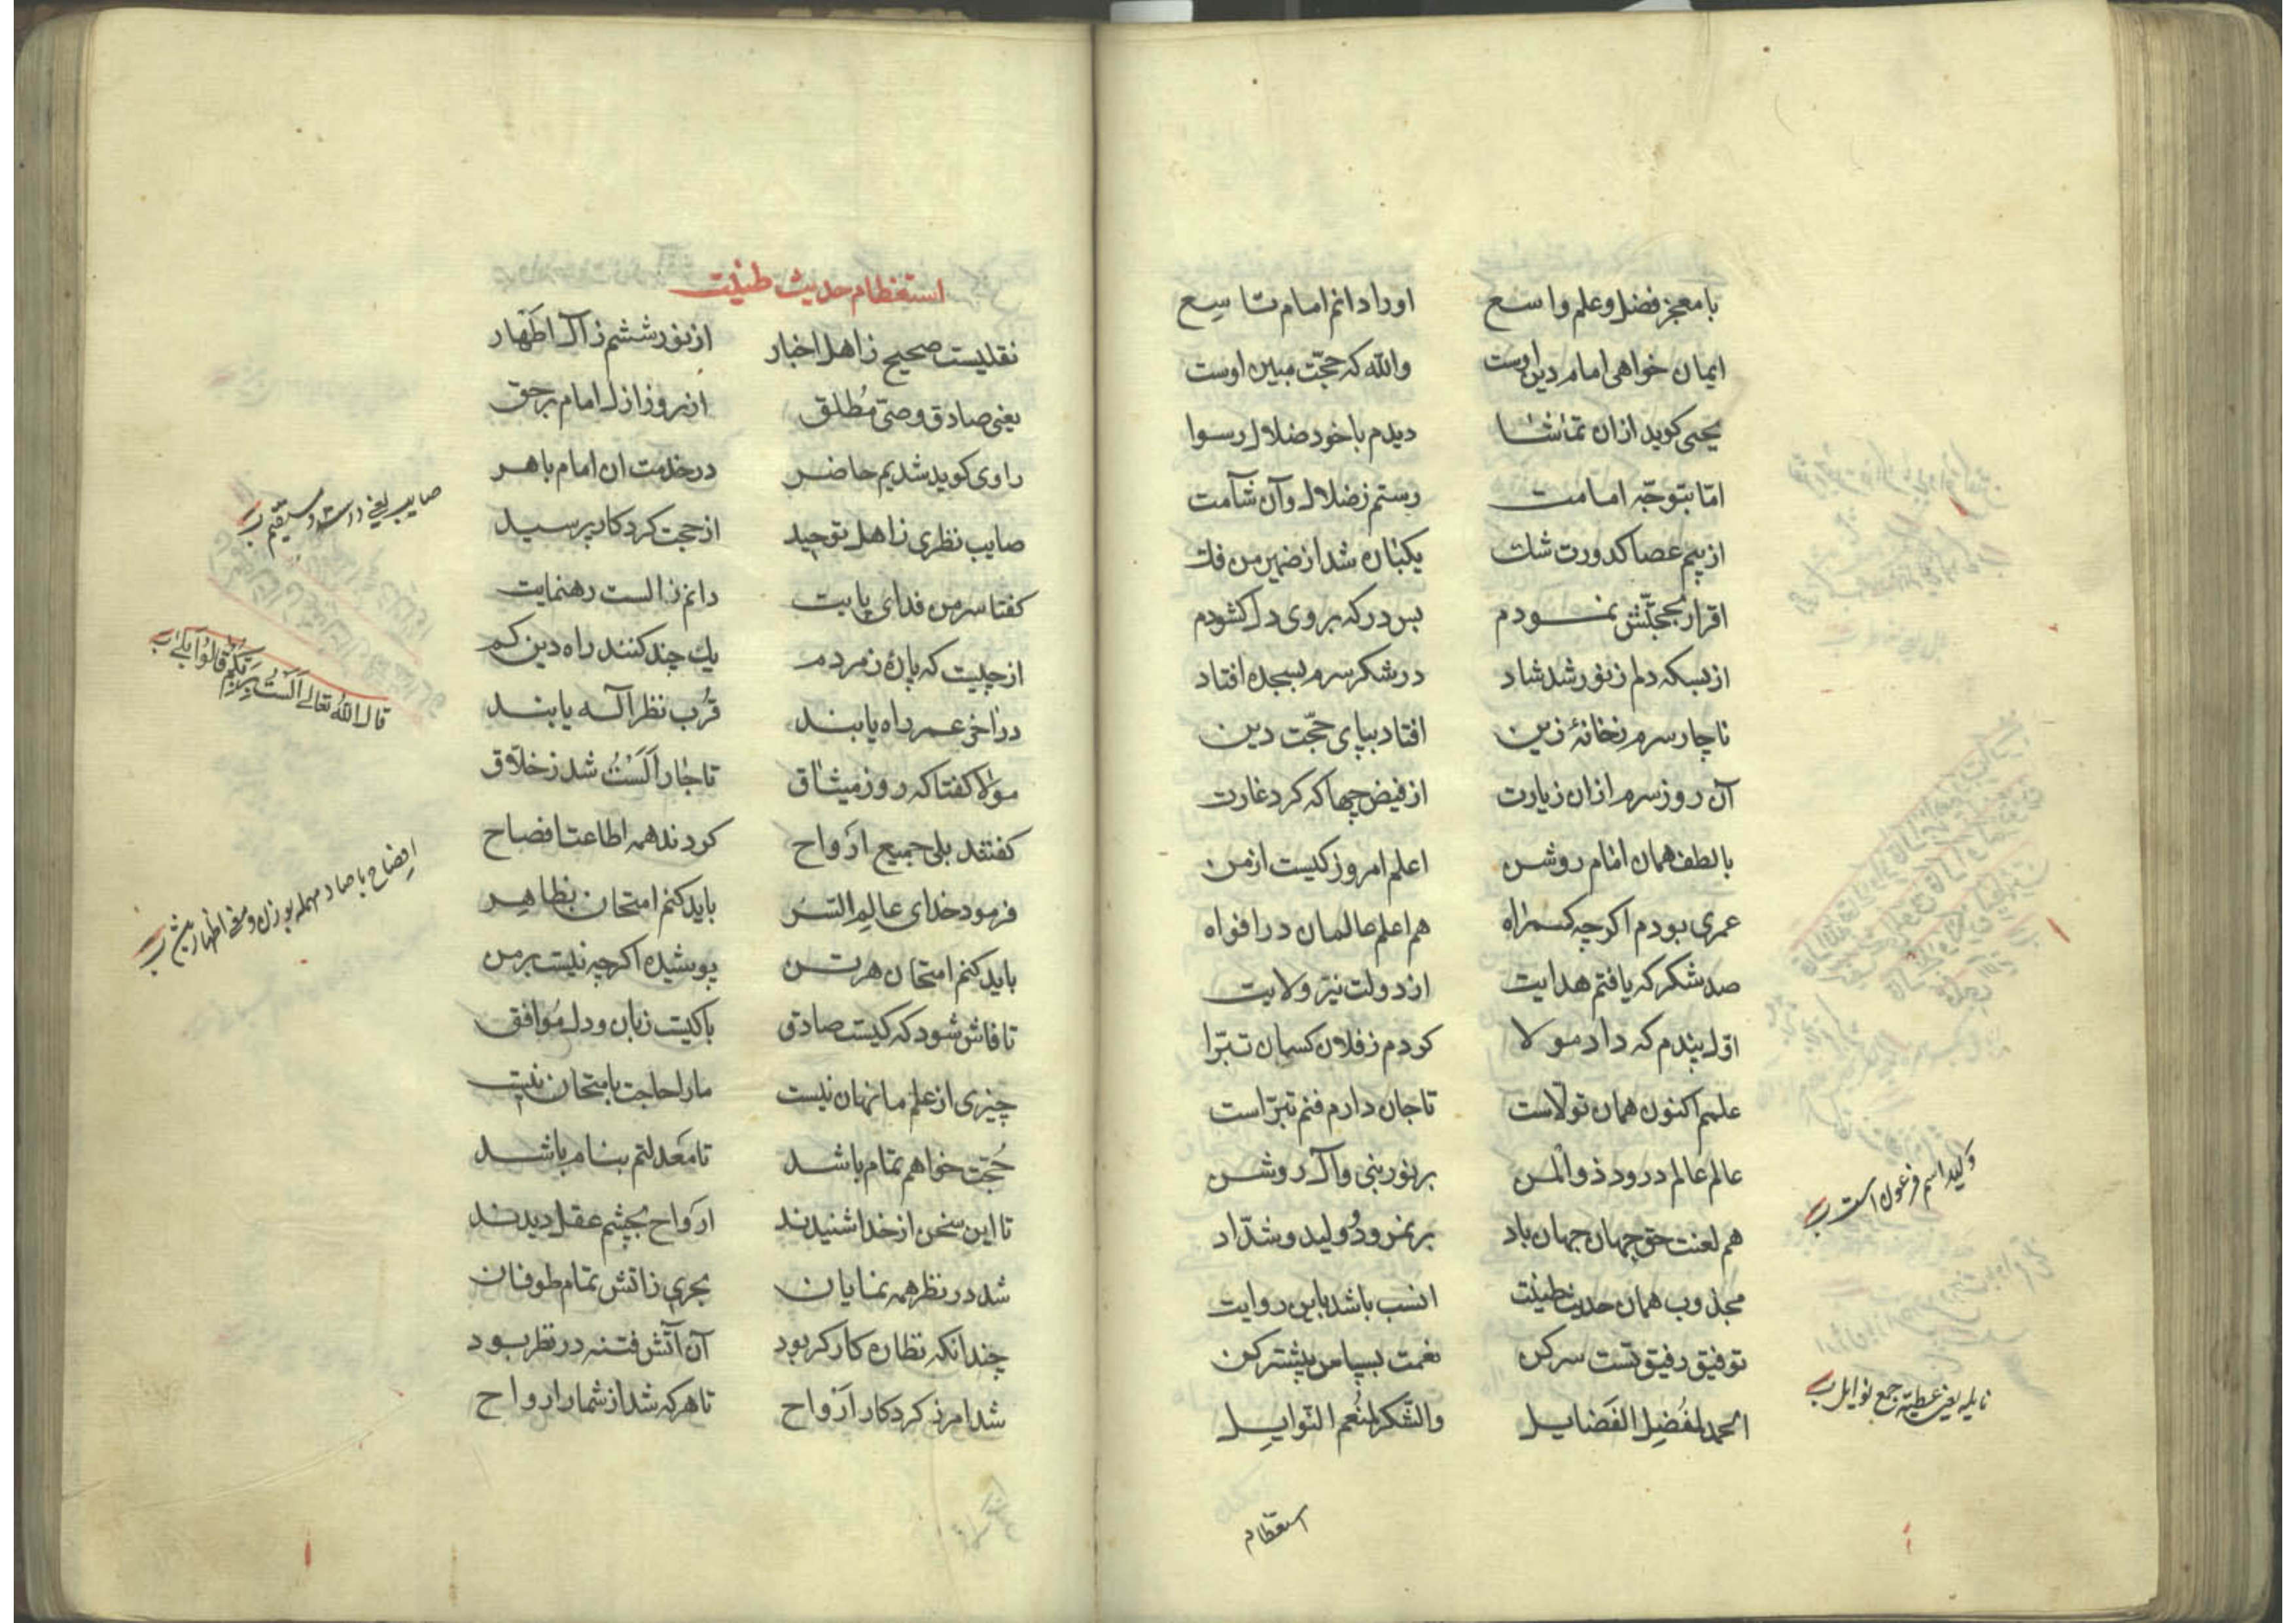 بامعجز فضل و علم واسع اورا دانم امام تاسع
ایمان خواهی امام دین اوست والله که حجّت مبین اوست
یحیی کوید ازان تماشا دیدم باخود ضلال رسوا
امّا بتوجّه امامت رستم زضلال وآن شآمت
ازبیم عصا کدورت شک یکباره شد از ضمیر من فک
اقرار بحجتّش نمودم بس درکه بروی دل کشودم
ازبسکه دلم زنور شد شاد درشکر سرم بسجده افتاد
ناچار سرم زخانهٔ زین افتاد بپای حجّت دین
آن روز سرم ازان زیارت ازفیض چهاکه کرد غارت
بالطف همان امام روشن اعلم امروز کیست ازمن
عمری بودم اکرچه کمراه هم اعلم عالمان در افواه
صد شکر که یافتم هدایت ازدولت نیّر ولایت
اوّل پندم که داد مولا کردم زفلان کسان تبرّا
علمم اکنون همان تولّاست تاجان دارم فنم تبرّاست
عالم عالم درود ذوالمن برنور نبی وآل روشن
هم لعنت حق جهان جهان باد برنمرود و ولید و شدّاد
مجذوب همان حدیث طینت انسب باشد باین روایت
توفیق رفیق تست سرکن نعمت بسپاس بیشتر کن
الحمد لمفُضِل الفَضایل والشّکر لمنُعم النّوایل
وَلید اسم فرعون است
نایله یعنی عطیّه جمع نوایل
استعظام
استعظام حدیث طینت
نقلیست صحیح زاهل اخبار ازنور ششم زآل اطَهار
یعنی صادق وصّی مُطلق ازروز ازل امام برحق
راوی کوید شدیم حاضر درخدمت ان امام باهر
صایب نظری زاهل توحید ازحجت کردکار پرسید
کفتا سر من فدای پایت دانم زالست رهنمایت
ازچیست که پارهٔ زمردم یک چند کنند راه دین کم
دراخر عمر راه یابند قُرب نظر آله یابند
مولا کفتا که روز میثاق تاجار اَلَستُ شد زخلّاق
کفتند بلی جمیع ارَواح کردند همه اطاعت افصاح
فرمود خدای عالِم السّر باید کنم امتحان بظاهر
باید کنم امتحان هرتن پوشیده اکرچه نیست برمن
تافاش شود که کیست صادق باکیست زبان ودل مُوافق
چیزی ازعلم ما نهان نیست ما را حاجت بامتحان نیست
حُجّت خواهم تمام باشد تامَعدلتم بنام باشد
تا این سخن ازخدا شنیدند ارَواح بچشم عقل دیدند
شد در نظر همه نمایان بحری زاتش تمام طوفان
چندانکه نظاره کارکر بود آن آتش فتنه در نظر بود
شد امر زکردکار ارَواح تاهرکه شد از شمار ارواح
صایب یعنی راست و مستقیم
قال الله تعالی اَلَستُ بِرَبِّکُم قالُوا بَلی
افصاح با صاد مهمله بوزن و معنی اظهار